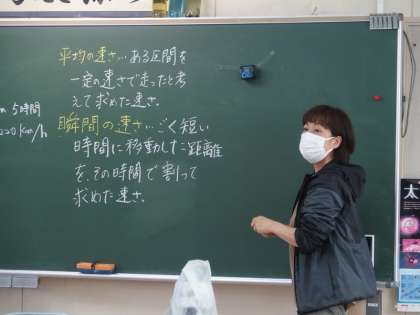 平均の速さ…ある区間を
一定の速さで走ったと考
えて求めた速さ。
瞬間の速さ…ごく短い
時間に移動した距離
を、その時間で割って
求めた速さ。
5時間
km/h
太